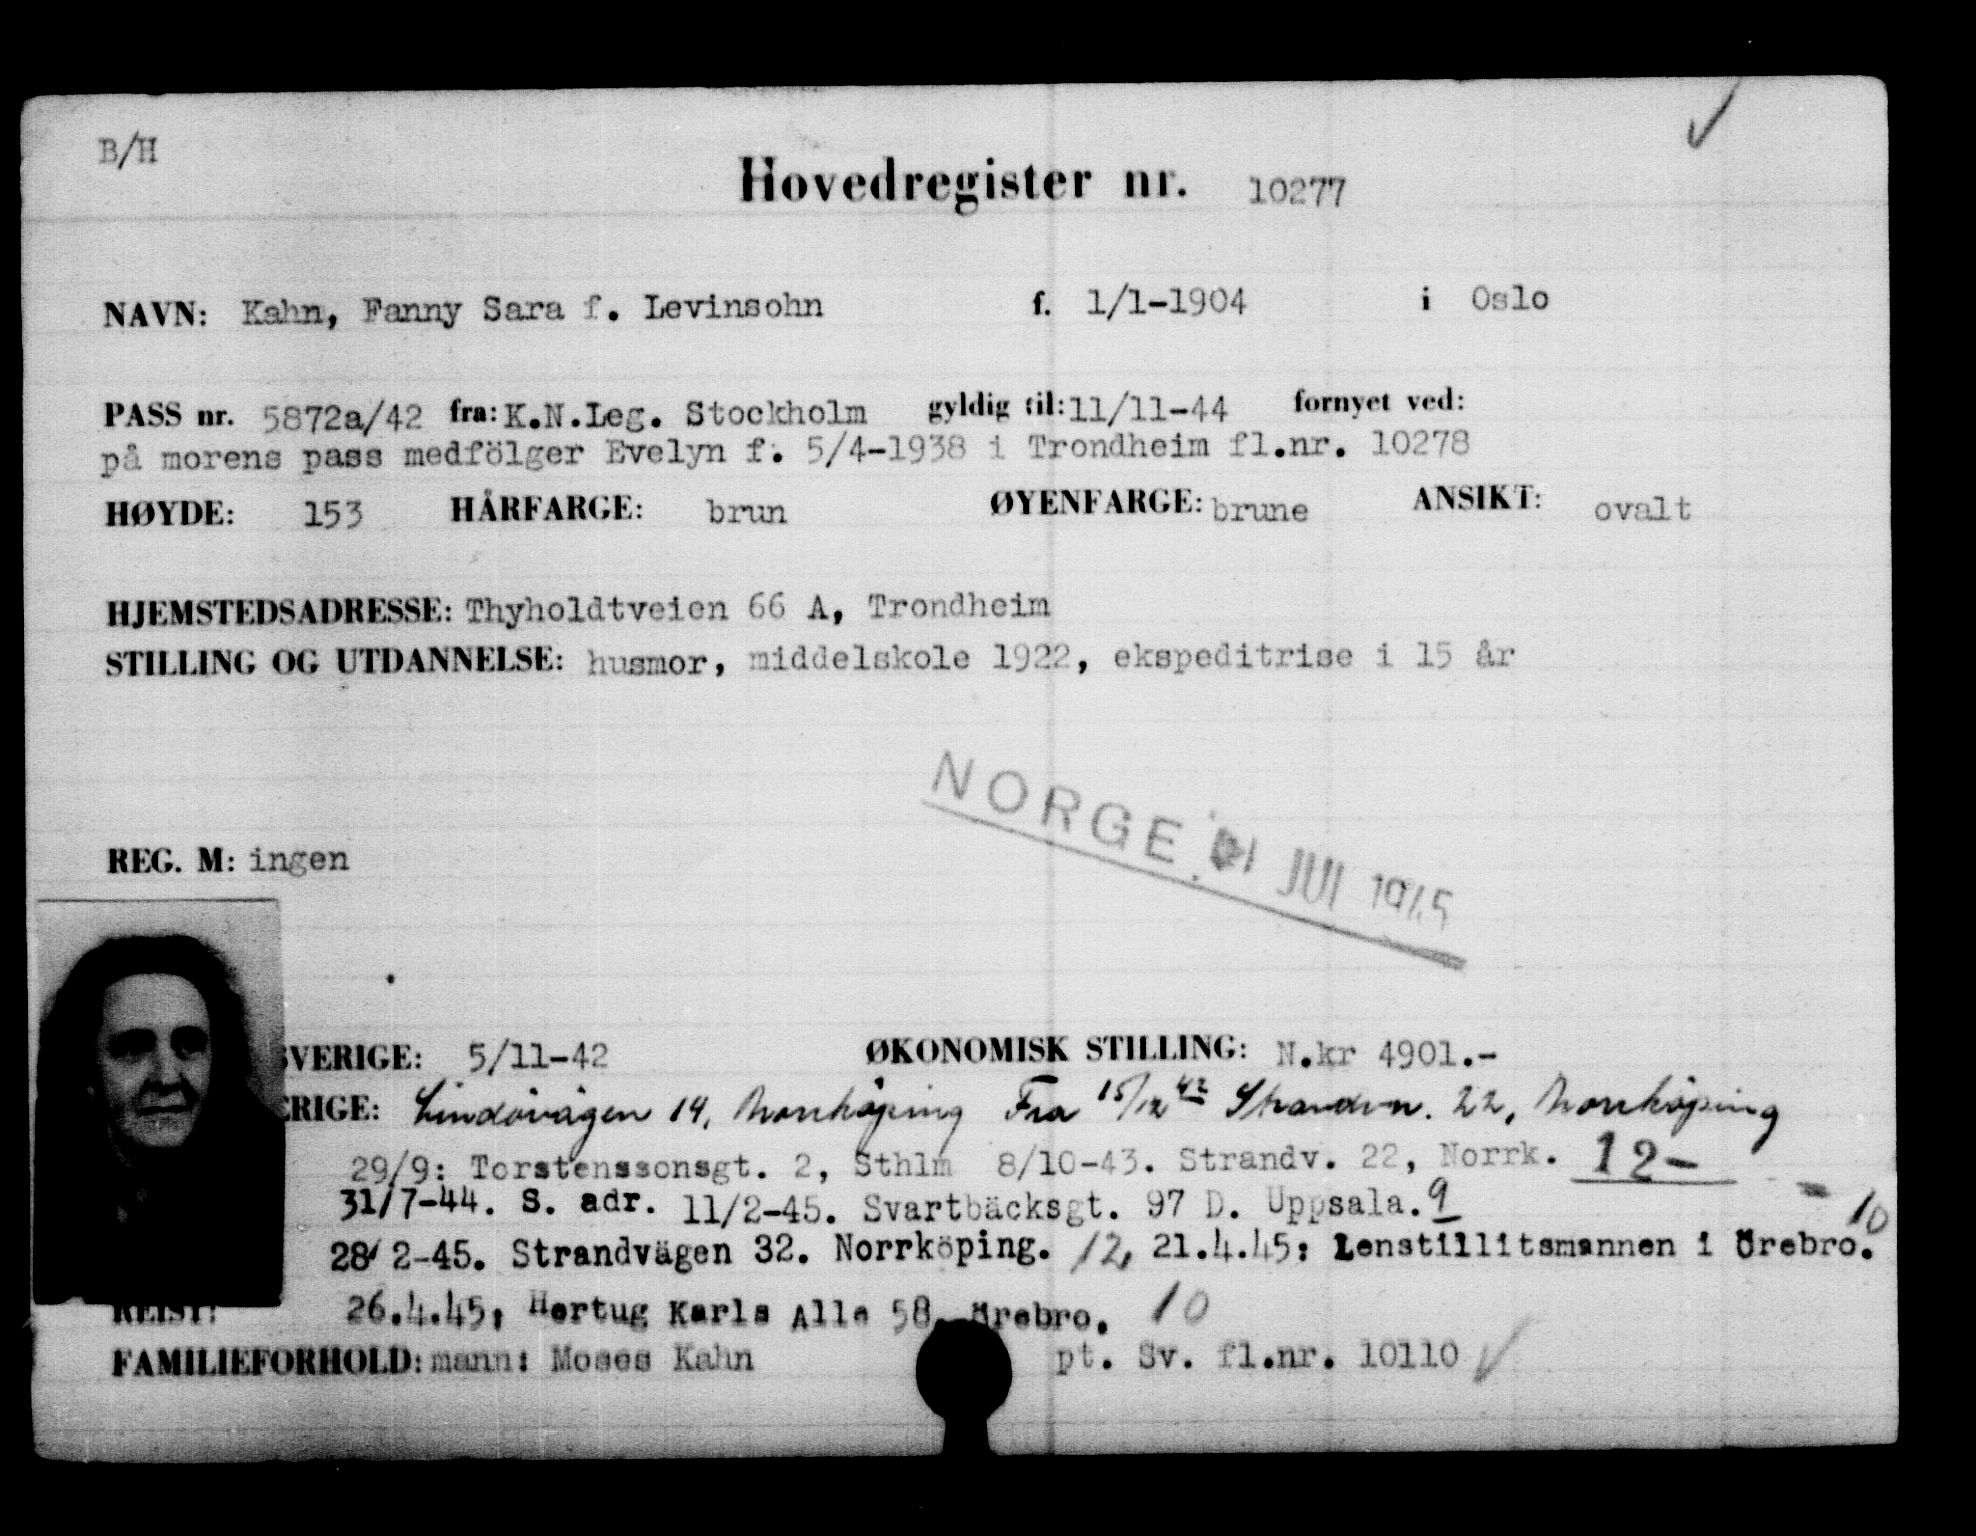 B/H
Hovedregister nr. 10277
NAVN: Kahn, Fanny Sara f. Levinsohn f. 1/1-1904 i Oslo
PASS nr. 5872a/42 fra: K.N.Leg. Stockholm gyldig til: 11/11-44 fornyet ved:
på morens pass medfölger Evelyn f. 5/4-1938 i Trondheim fl.nr. 10278
HØYDE: 153 HÅRFARGE: brun ØYENFARGE: brune ANSIKT: ovalt
HJEMSTEDSADRESSE: Thyholdtveien 66 A, Trondheim
STILLING OG UTDANNELSE: husmor, middelskole 1922, ekspeditrise i 15 år
NORGE JUI 1945
REG. M: ingen
SVERIGE: 5/11-42 ØKONOMISK STILLING: N.kr 4901.-
ERIGE: Lindövägen 14, Norrköping Fra 15/12 42 Strandv. 22, Norrköping
29/9: Torstenssonsgt. 2, Sthlm 8/10-43. Strandv. 22, Norrk. 12-
31/7-44. S. adr. 11/2-45. Svartbäcksgt. 97 D. Uppsala. 9
28/2-45. Strandvägen 32. Norrköping. 12, 21.4.45: Lenstillitsmannen i Örebro. 10
REIST: 26.4.45, Hertug Karls Alle 58, Örebro. 10
FAMILIEFORHOLD: mann: Moses Kahn pt. Sv. fl.nr. 10110